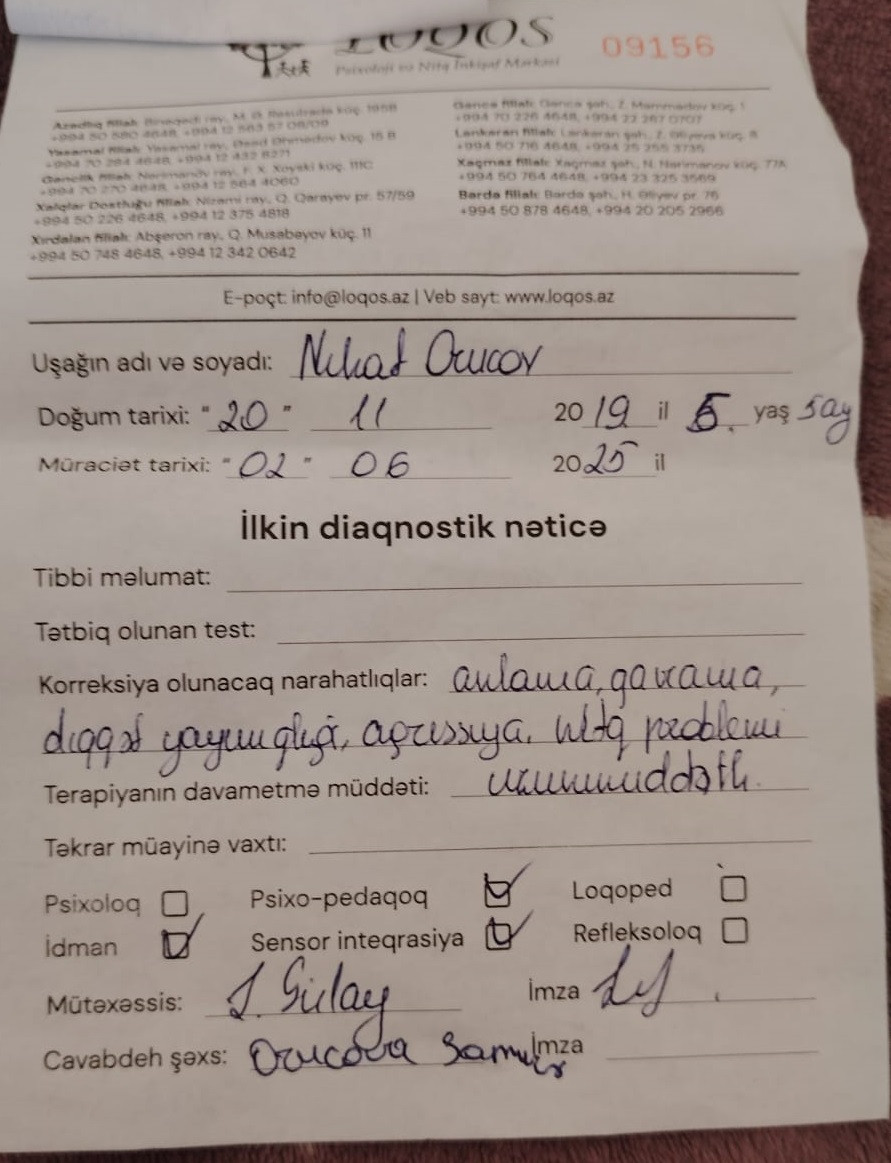 LOQOS 09156
Psixoloji və Nitq İnkişaf Mərkəzi
Azadlıq filialı: Binəqədi ray., M. Ə. Rəsulzadə küç. 195B
+994 50 580 4648, +994 12 563 57 08/09
Yasamal filialı: Yasamal ray., Əsəd Əhmədov küç. 15 B
+994 70 284 4648, +994 12 432 8271
Gənclik filialı: Nərimanov ray., F. X. Xoyski küç. 111C
+994 70 270 4648, +994 12 564 4060
Xalqlar Dostluğu filialı: Nizami ray., Q. Qarayev pr. 57/59
+994 50 226 4648, +994 12 375 4818
Xırdalan filialı: Abşeron ray., Q. Musabəyov küç. 11
+994 50 748 4648, +994 12 342 0642
Gəncə filialı: Gəncə şəh., Z. Məmmədov küç. 1
+994 70 226 4648, +994 22 267 0707
Lənkəran filialı: Lənkəran şəh., Z. Əliyeva küç. 8
+994 50 716 4648, +994 25 255 3735
Xaçmaz filialı: Xaçmaz şəh., N. Nərimanov küç. 77A
+994 50 764 4648, +994 23 325 3569
Bərdə filialı: Bərdə şəh., H. Əliyev pr. 76
+994 50 878 4648, +994 20 205 2966
E-poçt: info@loqos.az | Veb sayt: www.loqos.az
Uşağın adı və soyadı: Nihat Orucov
Doğum tarixi: "20" 11 2019 il 5. yaş 5ay
Müraciət tarixi: "02" 06 2025 il
İlkin diaqnostik nəticə
Tibbi məlumat:
Tətbiq olunan test:
Korreksiya olunacaq narahatlıqlar: anlama, qavrama,
diqqət yayınqlığı, aqressiya, nitq problemi
Terapiyanın davametmə müddəti: uzunmüddətli.
Təkrar müayinə vaxtı:
Psixoloq Psixo-pedaqoq Loqoped
İdman Sensor inteqrasiya Refleksoloq
Mütəxəssis: Gülay İmza
Cavabdeh şəxs: Orucova İmza